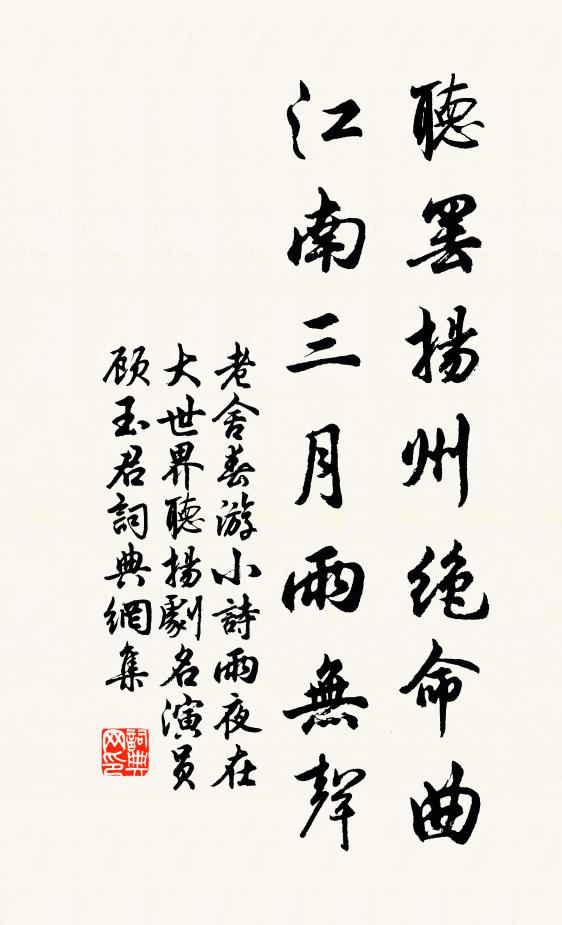 聽罢揚州绝命曲
江南三月雨無聲
老舍春游小詩雨夜在
大世界聽揚劇名演员
顾玉君詞典網集
詞典网印